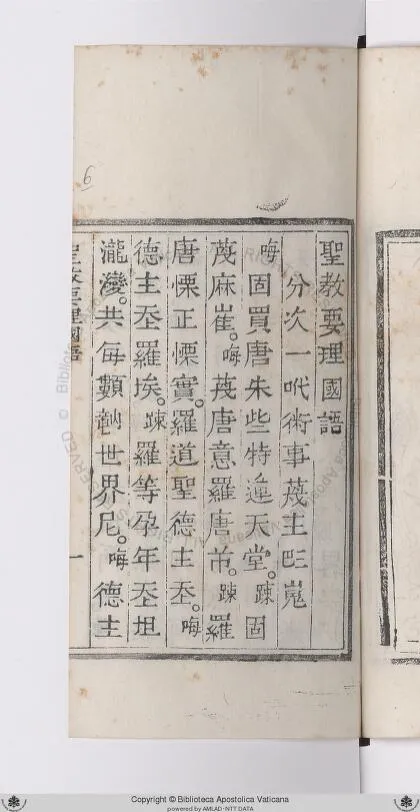 聖教要理國語
分次一吀術事𫇰主𠀧嵬
𠳨固買唐朱些特𨖲天堂。疎固
𫇰麻崔。𠳨𫇰唐意羅唐市。疎羅
唐慄正慄實。羅道聖德主𡗶。𠳨
德主𡗶羅埃。疎羅等孕年𡗶坦
瀧𤅶。共每類𨕭世界尼。𠳨德主
聖教要理國語
一
9
Copyright © Biblioteca Apostolica Vaticana
powered by AMLAD-NTT DATA